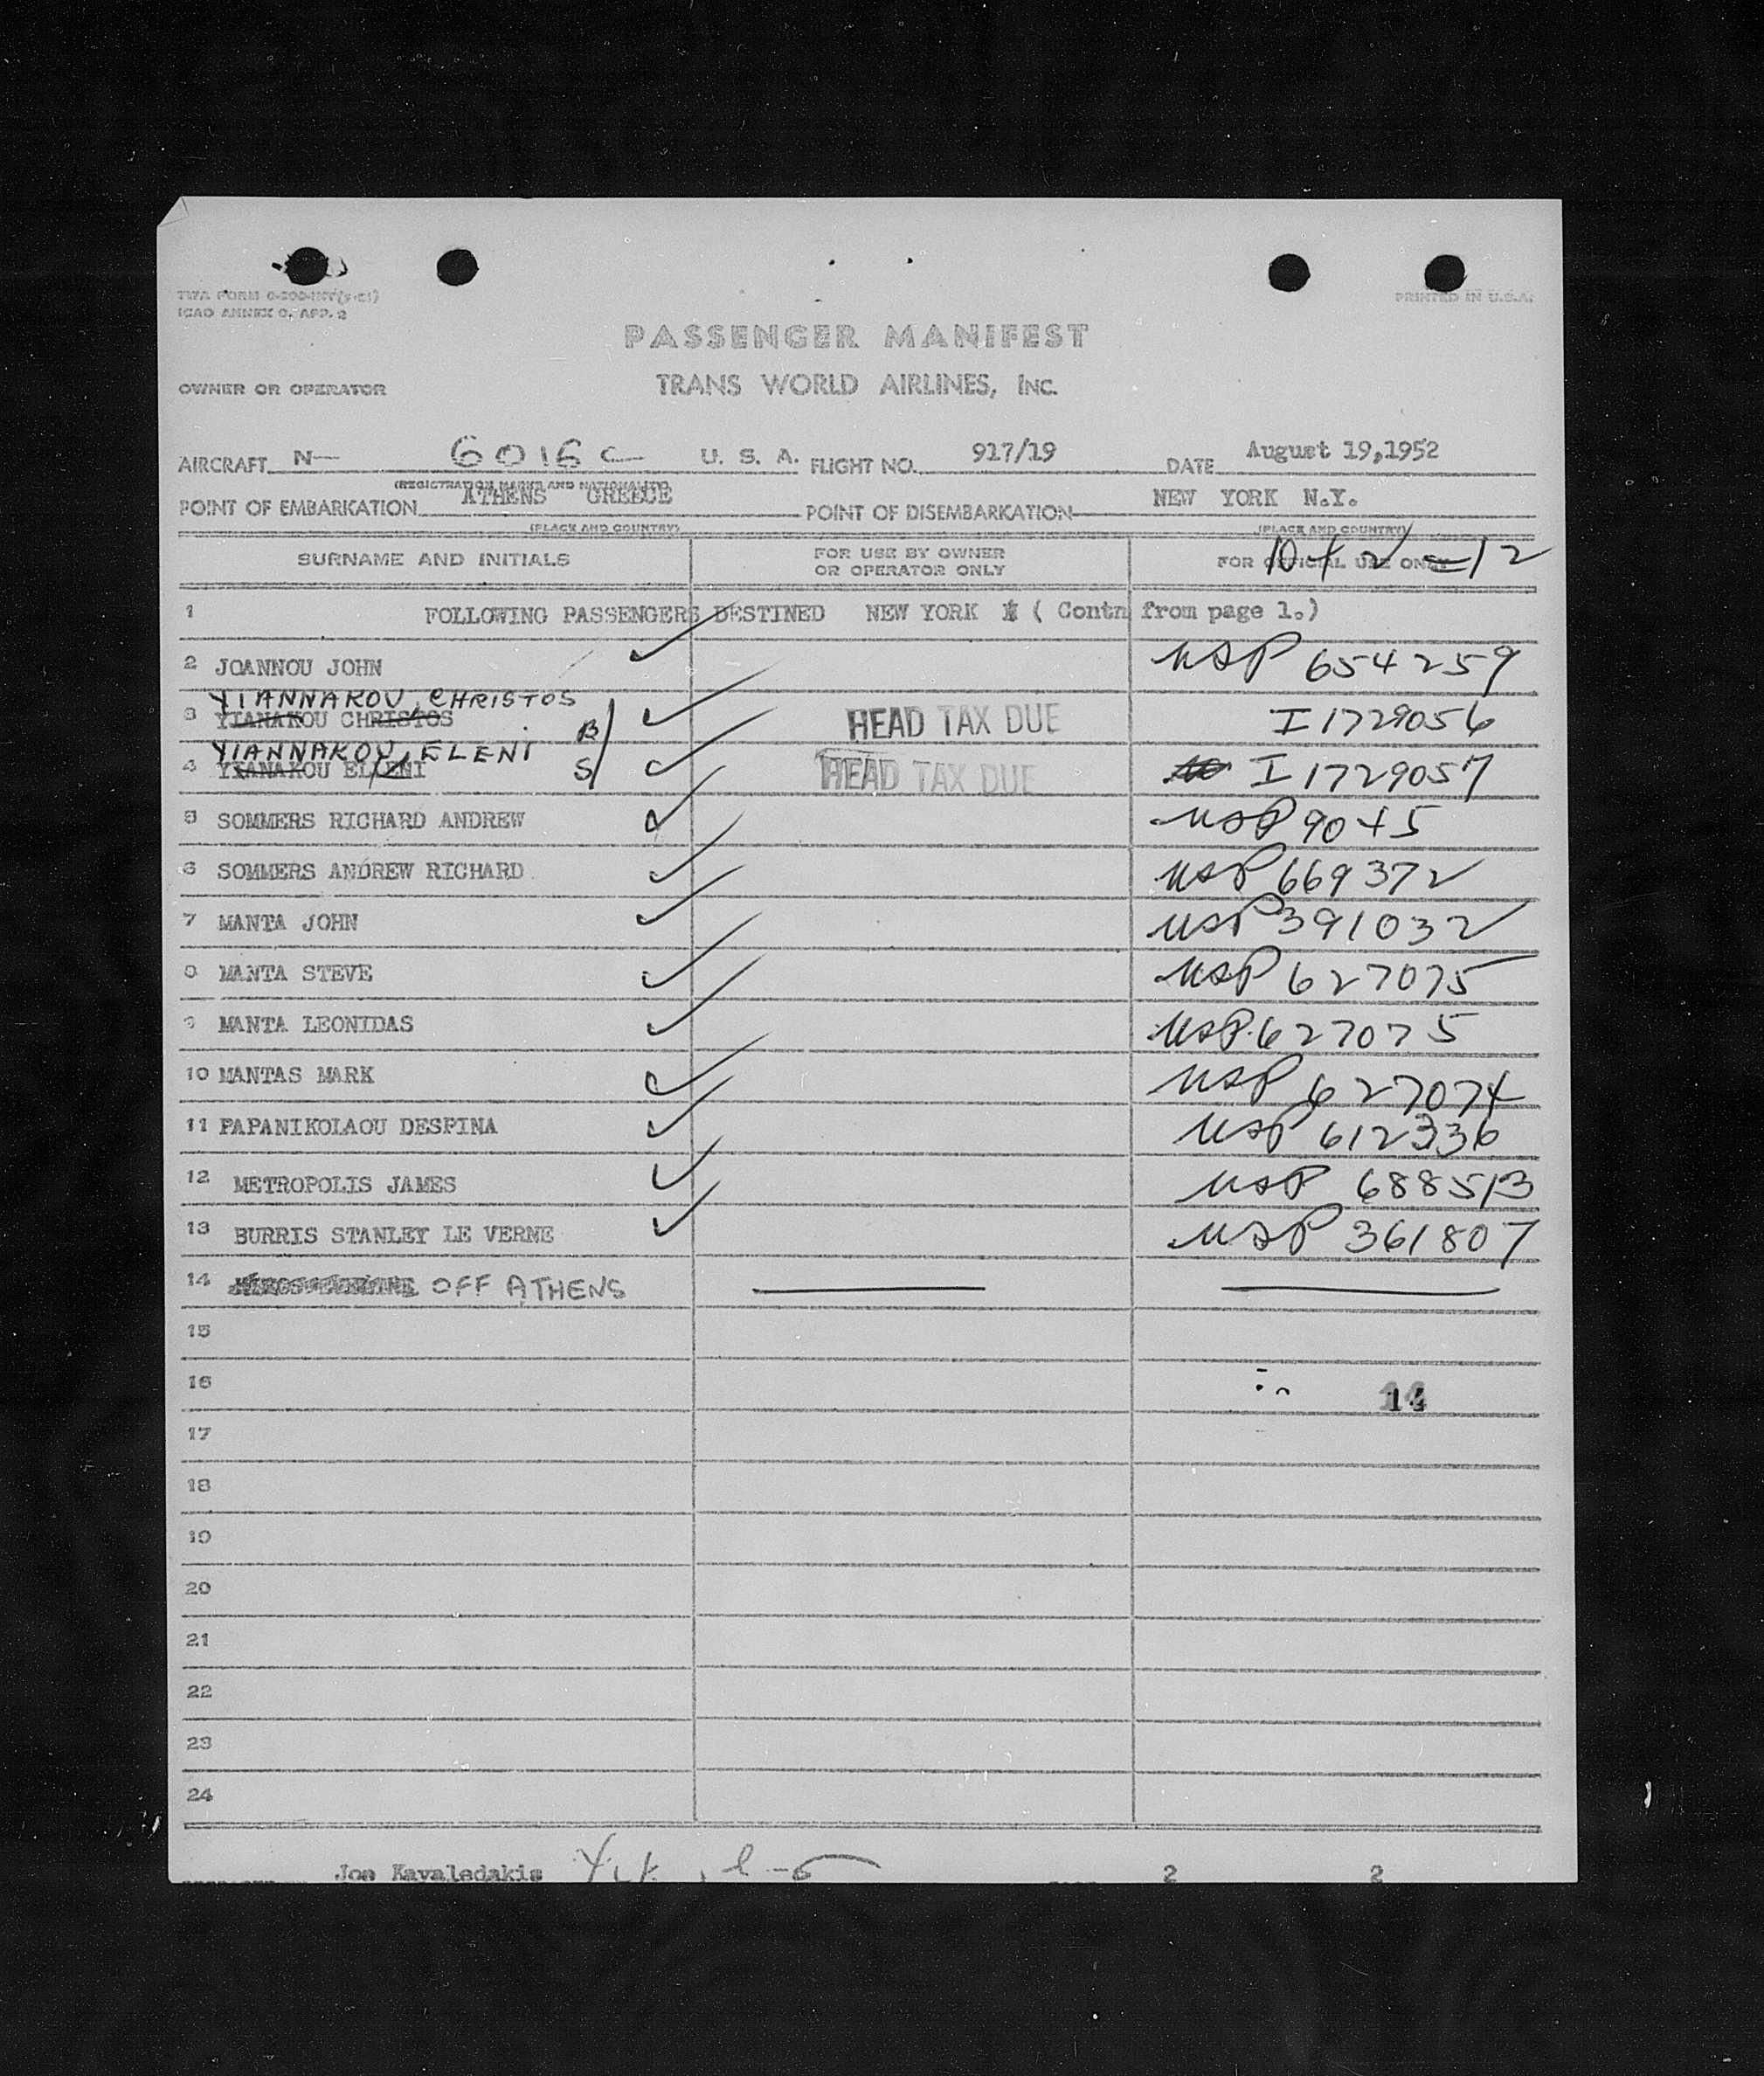 TWA FORM
ICAO ANNEX 9, APP. 2
PRINTED IN U.S.A.
PASSENGER MANIFEST
OWNER OR OPERATOR TRANS WORLD AIRLINES, INC.
AIRCRAFT N— 6016C U. S. A. FLIGHT NO. 917/19 DATE August 19,1952
(REGISTRATION MARKS AND NATIONALITY)
POINT OF EMBARKATION ATHENS GREECE POINT OF DISEMBARKATION NEW YORK N.Y.
(PLACE AND COUNTRY) (PLACE AND COUNTRY)
SURNAME AND INITIALS FOR USE BY OWNER OR OPERATOR ONLY FOR OFFICIAL USE ONLY 10 + 2 = 12
1 FOLLOWING PASSENGERS DESTINED NEW YORK ( Contn from page 1.)
2 JOANNOU JOHN USP 654259
YIANNAKOU, CHRISTOS
3 YIANAKOU CHRISTOS B HEAD TAX DUE I 1729056
YIANNAKOU, ELENI
4 YIANAKOU ELLENI S HEAD TAX DUE I 1729057
5 SOMMERS RICHARD ANDREW USP 9045
6 SOMMERS ANDREW RICHARD USP 669372
7 MANTA JOHN USP 391032
8 MANTA STEVE USP 627075
9 MANTA LEONIDAS USP 627075
10 MANTAS MARK USP 627074
11 PAPANIKOLAOU DESPINA USP 612336
12 METROPOLIS JAMES USP 688513
13 BURRIS STANLEY LE VERNE USP 361807
14 OFF ATHENS
15
16 14
17
18
19
20
21
22
23
24
Joe Kavaledakis 2 2